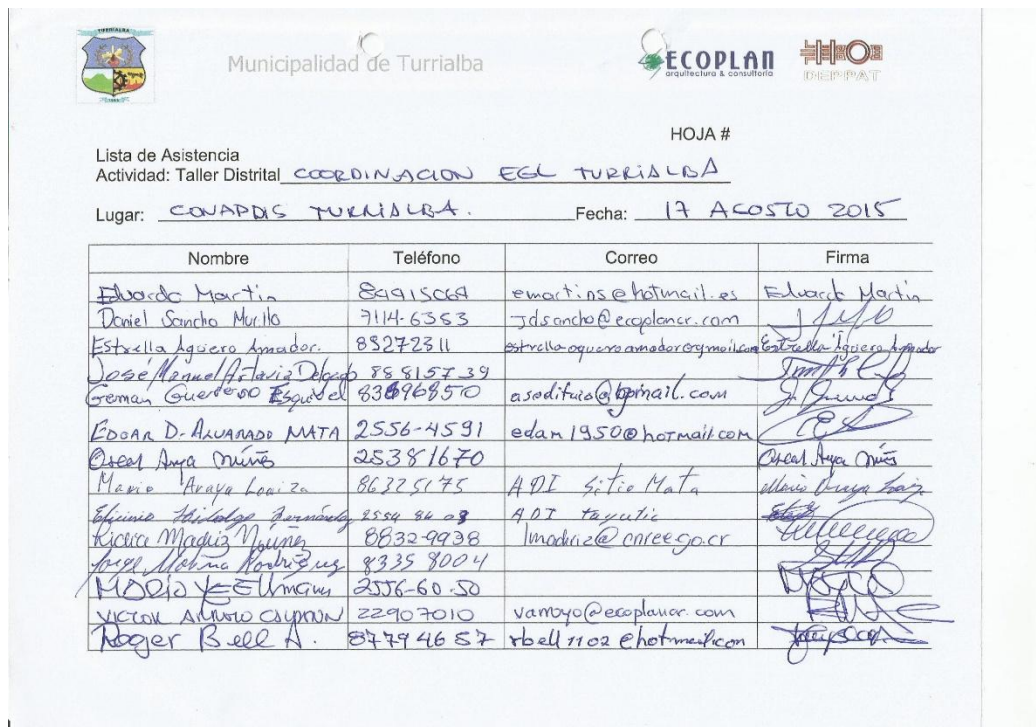 TURRIALBA
Municipalidad de Turrialba
ECOPLAN
arquitectura & consultoría
DEPPAT
HOJA #
Lista de Asistencia
Actividad: Taller Distrital COORDINACION EGL TURRIALBA
Lugar: CONAPDIS TURRIALBA. Fecha: 17 AGOSTO 2015
Nombre Teléfono Correo Firma
Eduardo Martin emartins@hotmail.es Eduardo Martin
Daniel Sancho Murillo 7114-6353 Jdsancho@ecoplancr.com
Estrella Agüero Amador. 89272311 estrella.aguero.amador@gmail.com Estrella Agüero Amador
José Manuel Delgado 88815739
German Guerrero Esquivel
EDGAR D. ALVARADO MATA 2556-4591 edam1950@hotmail.com
Oscar Araya Núñez 25381670 Oscar Araya Núñez
Mario Araya Loaiza 86325175 ADI Sitio Mata Mario Araya Loaiza
Hidalgo Hernández ADI
Madriz Núñez 8832-9938
Jorge Molina Rodríguez 8335 8004
2556-60-50
VICTOR 22907010 vamoyo@ecoplancr.com
Roger Bell A. 87794657 rbell1102@hotmail.com